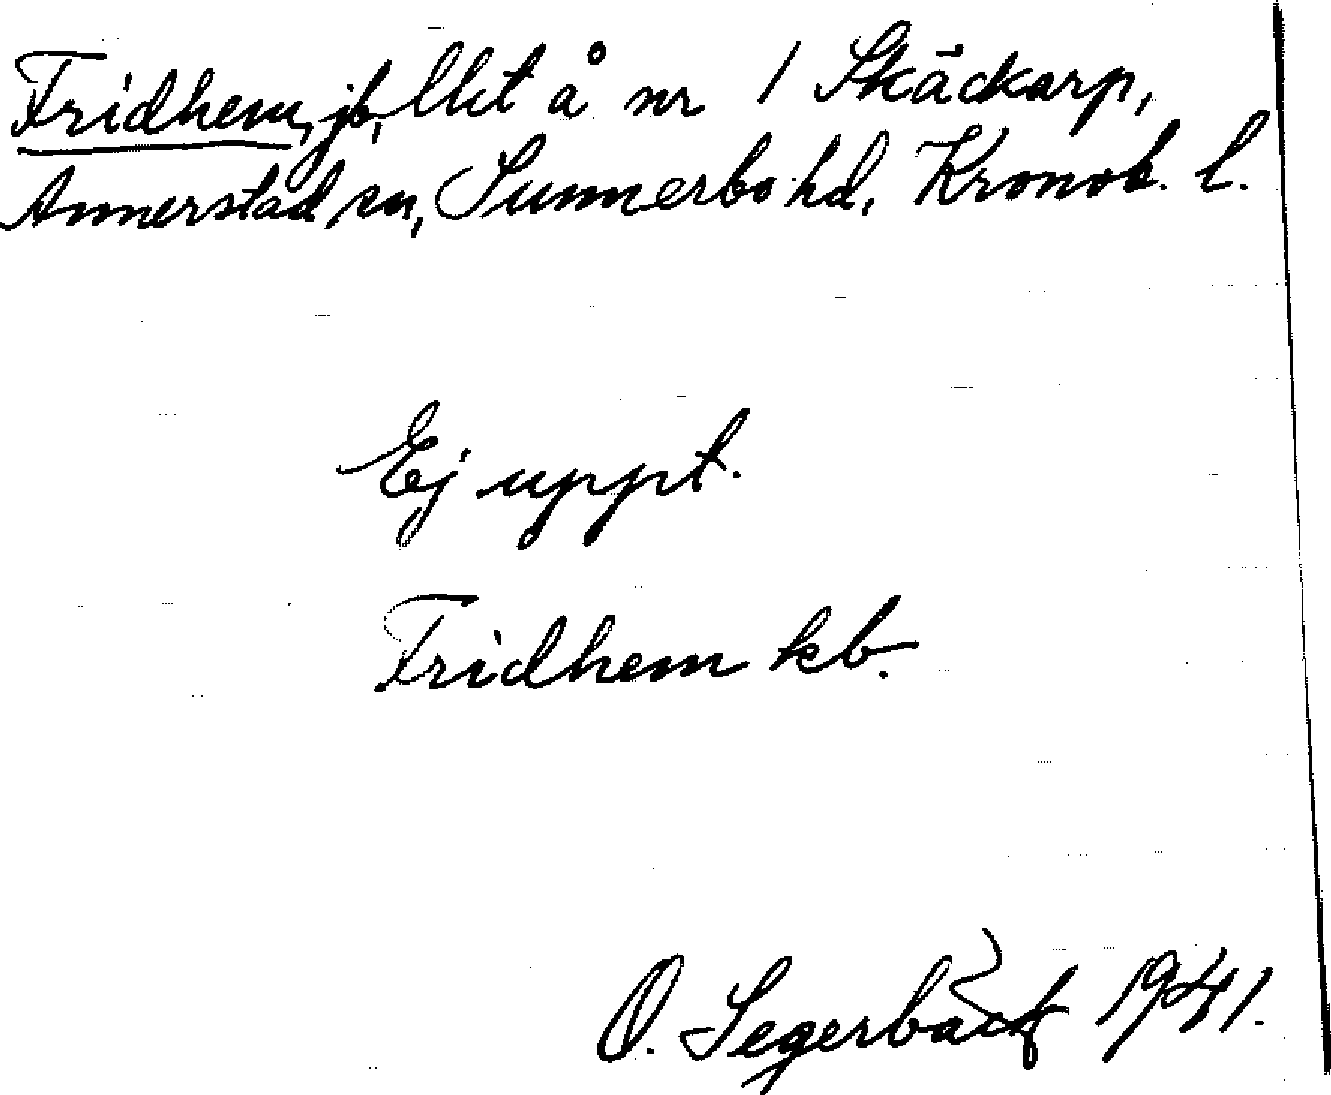 Fridhem, jb, lht å nr 1 Skäckarp,
Annerstad sn, Sunnerbo hd, Kronob. l.
Ej uppt.
Fridhem kb.
O. Segerbäck 1941.